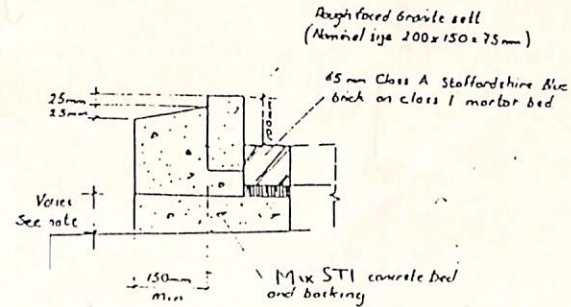 Rough faced Granite sett
(Nominal size 200 x 150 x 75mm)
65mm Class A Staffordshire Blue
brick on class 1 mortar bed
25mm
25mm
100mm
Varies
See note
150mm
Min
Mix ST1 concrete bed
and backing